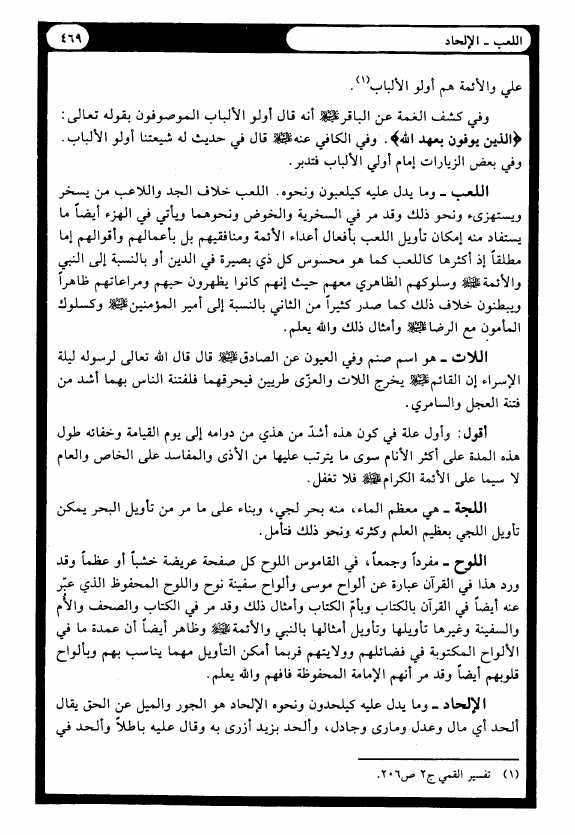 اللعب - الإلحاد
٤٦٩
علي والأئمة هم أولو الألباب(١).
وفي كشف الغمة عن الباقر ﷺ أنه قال أولو الألباب الموصوفون بقوله تعالى:
﴿الذين يوفون بعهد الله﴾. وفي الكافي عنه ﷺ قال في حديث له شيعتنا أولو الألباب.
وفي بعض الزيارات إمام أولي الألباب فتدبر.
اللعب - وما يدل عليه كيلعبون ونحوه. اللعب خلاف الجد واللاعب من يسخر
ويستهزىء ونحو ذلك وقد مر في السخرية والخوض ونحوهما ويأتي في الهزء أيضاً ما
يستفاد منه إمكان تأويل اللعب بأفعال أعداء الأئمة ومنافقيهم بل بأعمالهم وأقوالهم إما
مطلقاً إذ أكثرها كاللعب كما هو محسوس كل ذي بصيرة في الدين أو بالنسبة إلى النبي
والأئمة ﷺ وسلوكهم الظاهري معهم حيث إنهم كانوا يظهرون حبهم ومراعاتهم ظاهراً
ويبطنون خلاف ذلك كما صدر كثيراً من الثاني بالنسبة إلى أمير المؤمنين ﷺ وكسلوك
المأمون مع الرضا ﷺ وأمثال ذلك والله يعلم.
اللات - هو اسم صنم وفي العيون عن الصادق ﷺ قال قال الله تعالى لرسوله ليلة
الإسراء إن القائم ﷺ يخرج اللات والعزّى طريين فيحرقهما فلفتنة الناس بهما أشد من
فتنة العجل والسامري.
أقول: وأول علة في كون هذه أشدّ من هذي من دوامه إلى يوم القيامة وخفائه طول
هذه المدة على أكثر الأنام سوى ما يترتب عليها من الأذى والمفاسد على الخاص والعام
لا سيما على الأئمة الكرام ﷺ فلا تغفل.
اللجة - هي معظم الماء، منه بحر لجي، وبناء على ما مر من تأويل البحر يمكن
تأويل اللجي بعظيم العلم وكثرته ونحو ذلك فتأمل.
اللوح - مفرداً وجمعاً، في القاموس اللوح كل صفحة عريضة خشباً أو عظماً وقد
ورد هذا في القرآن عبارة عن ألواح موسى وألواح سفينة نوح واللوح المحفوظ الذي عبّر
عنه أيضاً في القرآن بالكتاب وبأمّ الكتاب وأمثال ذلك وقد مر في الكتاب والصحف والأُم
والسفينة وغيرها تأويلها وتأويل أمثالها بالنبي والأئمة ﷺ وظاهر أيضاً أن عمدة ما في
الألواح المكتوبة في فضائلهم وولايتهم فربما أمكن التأويل مهما يناسب بهم وبألواح
قلوبهم أيضاً وقد مر أنهم الإمامة المحفوظة فافهم والله يعلم.
الإلحاد - وما يدل عليه كيلحدون ونحوه الإلحاد هو الجور والميل عن الحق يقال
ألحد أي مال وعدل ومارى وجادل، وألحد بزيد أزرى به وقال عليه باطلاً وألحد في
(١) تفسير القمي ج٢ ص٢٠٦.